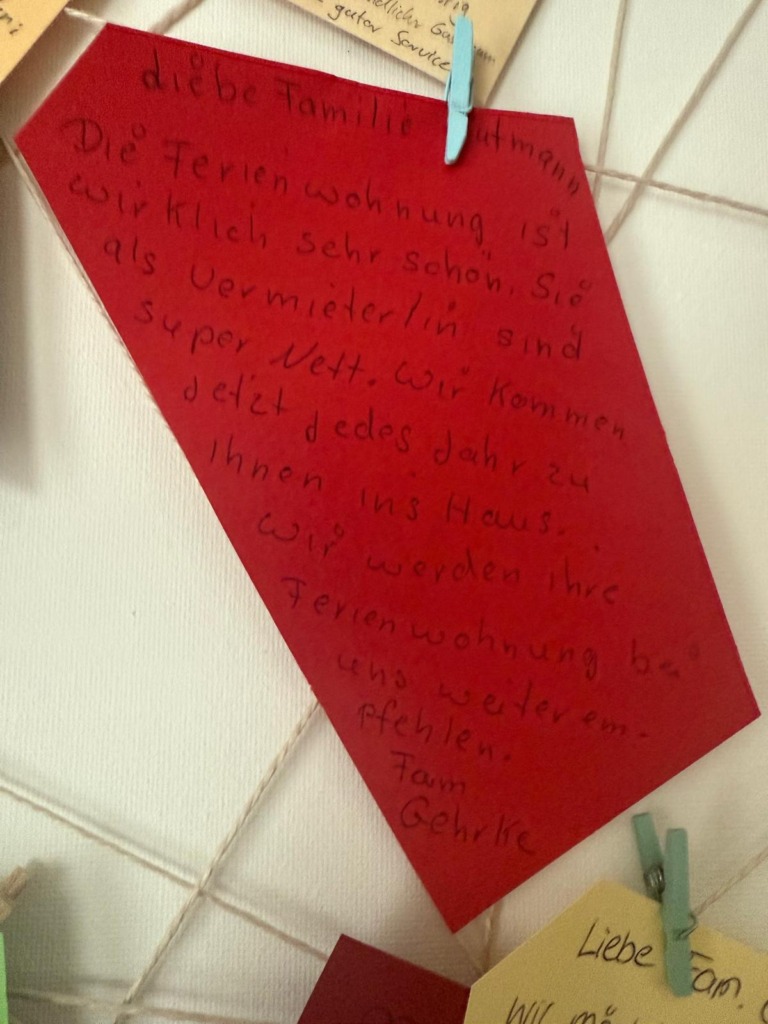 guter Service
Liebe Familie utmann
Die Ferienwohnung ist
wirklich sehr schön. Sie
als Vermieter/in sind
super Nett. Wir kommen
Jetzt jedes Jahr zu
ihnen ins Haus.
Wir werden ihre
Ferienwohnung bei
uns weiterem-
pfehlen.
Fam
Gehrke
Liebe Fam.
Wir